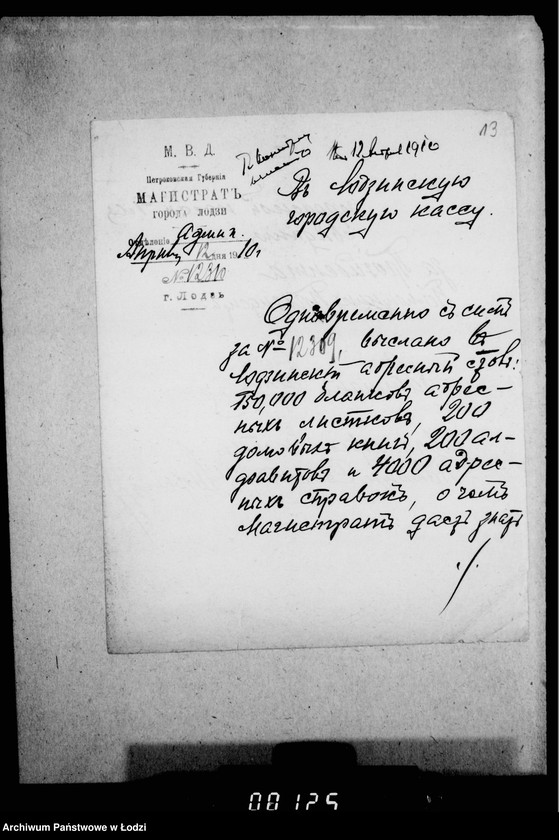 13
М. В. Д.
Петроковская Губернія
МАГИСТРАТЪ
города лодзи
Отдѣленіе Админ.
Апрѣля 12 дня 1910 г.
№ 12310
г. Лодзь
12 Апрѣля 1910
Въ Лодзинскую
городскую кассу.
Одновременно съ симъ
за № 12309, выслано въ
Лодзинскій адресный столъ:
150,000 бланковъ адрес-
ныхъ листковъ, 200
домовыхъ книгъ, 200 ал-
фавитовъ и 4000 адрес-
ныхъ справокъ, о чемъ
Магистратъ даетъ знать
./.
00125
Archiwum Państwowe w Łodzi